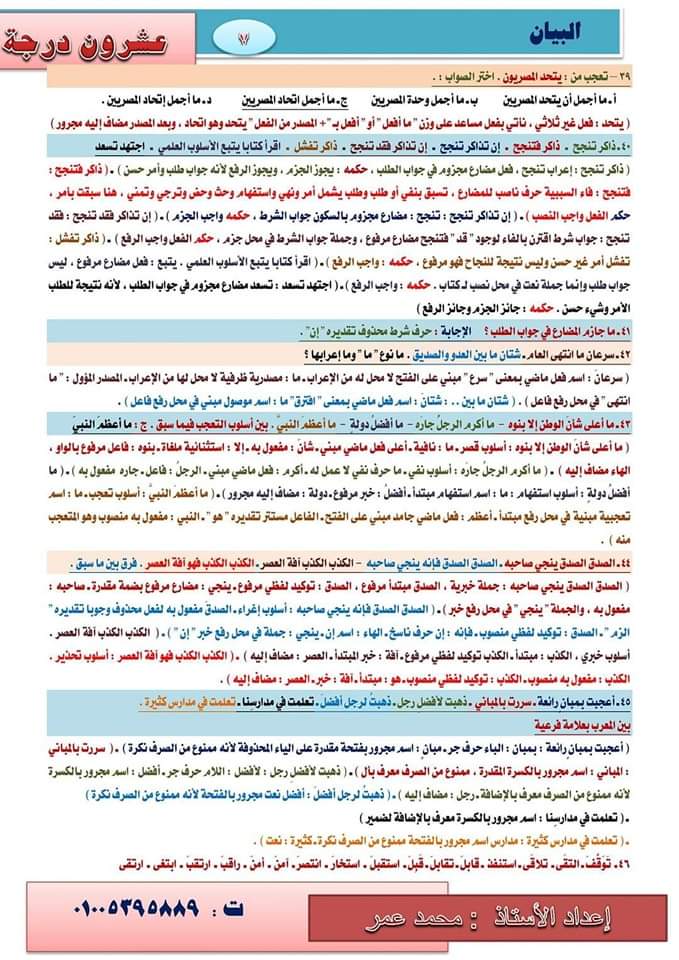 البيان
٧
عشرون درجة
٣٩ – تعجب من : يتحد المصريون . اختر الصواب : .
أ ـ ما أجمل أن يتحد المصريين ب ـ ما أجمل وحدة المصريين ج ـ ما أجمل اتحاد المصريين د ـ ما أجمل إتحاد المصريين .
( يتحد : فعل غير ثلاثي ، نأتي بفعل مساعد على وزن " ما أفعل " أو " أفعل بـ "+ المصدر من الفعل " يتحد وهو اتحاد ، وبعد المصدر مضاف إليه مجرور )
٤٠ـ ذاكر تنجح ـ ذاكر فتنجح ـ إن تذاكر تنجح ـ إن تذاكر فقد تنجح ـ ذاكر تفشل ـ اقرأ كتابا يتبع الأسلوب العلمي ـ اجتهد تسعد
( ذاكر تنجح : إعراب تنجح ، فعل مضارع مجزوم في جواب الطلب ، حكمه : يجوز الجزم ، ويجوز الرفع لأنه جواب طلب وأمر حسن ) ـ ( ذاكر فتنجح :
فتنجح : فاء السببية حرف ناصب للمضارع ، تسبق بنفي أو طلب وطلب يشمل أمر ونهي واستفهام وحث وحض وترجي وتمني ، هنا سبقت بأمر ،
حكم الفعل واجب النصب ) ـ ( إن تذاكر تنجح : تنجح : مضارع مجزوم بالسكون جواب الشرط ، حكمه واجب الجزم ) ـ ( إن تذاكر فقد تنجح : فقد
تنجح : جواب شرط اقترن بالفاء لوجود " قد " فتنجح مضارع مرفوع ، وجملة جواب الشرط في محل جزم ، حكم الفعل واجب الرفع ) ـ ( ذاكر تفشل :
تفشل أمر غير حسن وليس نتيجة للنجاح فهو مرفوع ، حكمه : واجب الرفع ) ـ ( اقرأ كتابا يتبع الأسلوب العلمي . يتبع : فعل مضارع مرفوع ، ليس
جواب طلب وإنما جملة نعت في محل نصب لـ كتابا . حكمه : واجب الرفع ) ـ ( اجتهد تسعد : تسعد مضارع مجزوم في جواب الطلب ، لأنه نتيجة للطلب
الأمر وشيء حسن . حكمه : جائز الجزم وجائز الرفع )
٤١ـ ما جازم المضارع في جواب الطلب ؟ الإجابة : حرف شرط محذوف تقديره " إن " .
٤٢ـ سرعان ما انتهى العام ـ شتان ما بين العدو والصديق . ما نوع " ما " وما إعرابها ؟
( سرعان : اسم فعل ماضي بمعنى " سرع " مبني على الفتح لا محل له من الإعراب ـ ما : مصدرية ظرفية لا محل لها من الإعراب ـ المصدر المؤول : " ما
انتهى " في محل رفع فاعل ) . ( شتان ما بين .. : شتان : اسم فعل ماضي بمعنى " افترق " ما : اسم موصول مبني في محل رفع فاعل ) .
٤٣ـ ما أعلى شأن الوطن إلا بنوه – ما أكرم الرجل جاره – ما أفضل دولة – ما أعظم النبيَّ . بين أسلوب التعجب فيما سبق . ج : ما أعظمَ النبيَّ
( ما أعلى شأن الوطن إلا بنوه : أسلوب قصر ـ ما : نافية ـ أعلى فعل ماضي مبني ـ شأن : مفعول به ـ إلا : استثنائية ملغاة ـ بنوه : فاعل مرفوع بالواو ،
الهاء مضاف إليه ) ـ ( ما أكرم الرجلُ جارَه : أسلوب نفي ـ ما حرف نفي لا عمل له ـ أكرم : فعل ماضي مبني ـ الرجلُ : فاعل ـ جاره مفعول به ) ـ ( ما
أفضلُ دولةٍ : أسلوب استفهام : ما : اسم استفهام مبتدأ ـ أفضلُ : خبر مرفوع ـ دولة : مضاف إليه مجرور ) ـ ( ما أعظمَ النبيَّ : أسلوب تعجب ـ ما : اسم
تعجبية مبنية في محل رفع مبتدأ ـ أعظم : فعل ماضي جامد مبني على الفتح ـ الفاعل مستتر تقديره " هو " ـ النبي : مفعول به منصوب وهو المتعجب
منه ) .
٤٤ـ الصدق الصدق ينجي صاحبه ـ الصدق الصدق فإنه ينجي صاحبه – الكذب الكذب آفة العصر ـ الكذب الكذب فهو آفة العصر . فرق بين ما سبق .
( الصدق الصدق ينجي صاحبه : جملة خبرية ، الصدق مبتدأ مرفوع ، الصدق : توكيد لفظي مرفوع ـ ينجي : مضارع مرفوع بضمة مقدرة ـ صاحبه :
مفعول به ، والجملة " ينجي " في محل رفع خبر ) ـ ( الصدق الصدق فإنه ينجي صاحبه : أسلوب إغراء ـ الصدق مفعول به لفعل محذوف وجوبا تقديره "
الزم " ـ الصدق : توكيد لفظي منصوب ـ فإنه : إن حرف ناسخ ـ الهاء : اسم إن ـ ينجي : جملة في محل رفع خبر " إن " ) ـ ( الكذب الكذب آفة العصر .
أسلوب خبري ، الكذب : مبتدأ ـ الكذب توكيد لفظي مرفوع ـ آفة : خبر المبتدأ ـ العصر : مضاف إليه ) ـ ( الكذب الكذب فهو آفة العصر : أسلوب تحذير .
الكذب : مفعول به منصوب ـ الكذب : توكيد لفظي منصوب ـ هو : مبتدأ ـ آفة : خبر ـ العصر : مضاف إليه ) .
٤٥ـ أعجبت بمبان رائعة ـ سررت بالمباني ـ ذهبت لأفضل رجل ـ ذهبتُ لرجل أفضلَ ـ تعلمت في مدارسنا ـ تعلمت في مدارس كثيرة .
بين المعرب بعلامة فرعية
( أعجبت بمبانٍ رائعة : بمبان : الباء حرف جر ـ مبانٍ : اسم مجرور بفتحة مقدرة على الياء المحذوفة لأنه ممنوع من الصرف نكرة ) ـ ( سررت بالمباني
: المباني : اسم مجرور بالكسرة المقدرة ، ممنوع من الصرف معرف بأل ) ـ ( ذهبت لأفضلِ رجل : لأفضل : اللام حرف جر ـ أفضل : اسم مجرور بالكسرة
لأنه ممنوع من الصرف معرف بالإضافة ـ رجل : مضاف إليه ) ـ ( ذهبتُ لرجل أفضل : أفضل نعت مجرور بالفتحة لأنه ممنوع من الصرف نكرة )
ـ ( تعلمت في مدارسِنا : مدارس اسم مجرور بالكسرة معرف بالإضافة لضمير )
ـ ( تعلمت في مدارس كثيرة : مدارس اسم مجرور بالفتحة ممنوع من الصرف نكرة ـ كثيرة : نعت ) .
٤٦ـ تَوَقَّفَ ـ التقَى ـ تلاقَى ـ استنفذ ـ قابلَ ـ تقابلَ ـ قَبِلَ ـ استقبلَ ـ استخارَ ـ انتصرَ ـ آمنَ ـ أمنَ ـ راقبَ ـ ارتقبَ ـ ابتغى ـ ارتقى
إعداد الأستاذ : محمد عمر
ت : ٠١٠٠٥٣٩٥٨٨٩